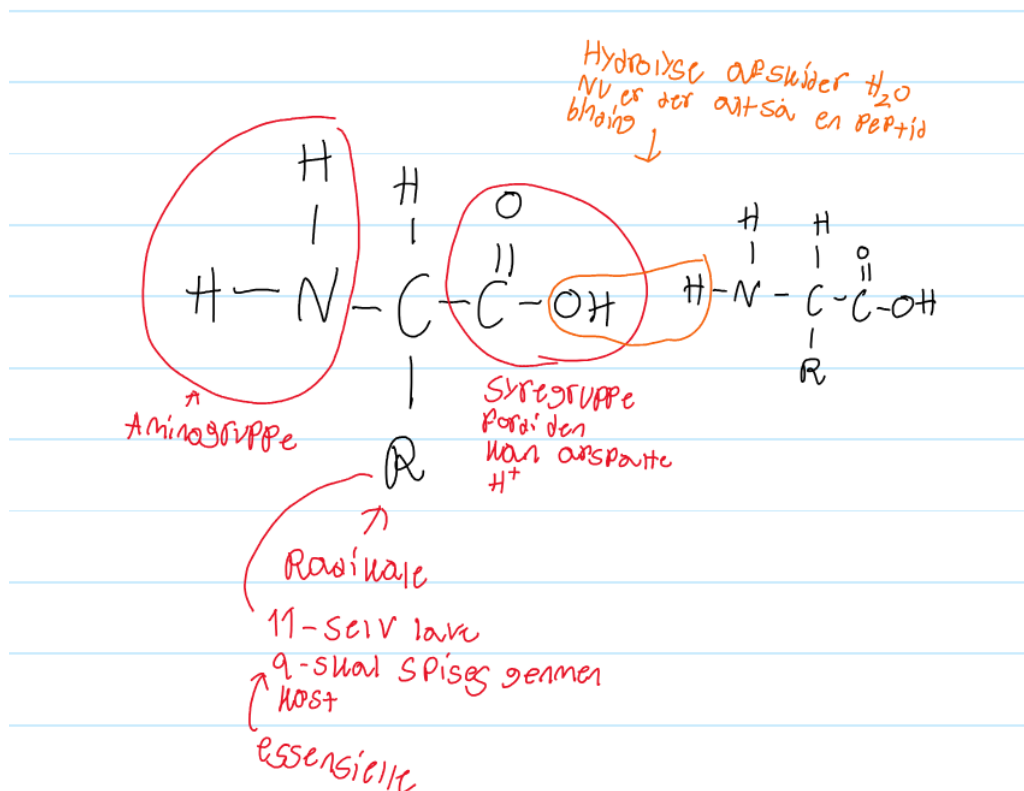 Hydrolyse afskider H₂O
Nu er der altså en peptid
binding
H H O
H-N-C-C-OH
R
H H O
H-N-C-C-OH
R
Aminogruppe
Syregruppe
fordi den
kan afspalte
H⁺
Radikale
11-selv lave
9-skal spises gennem
kost
essensielle